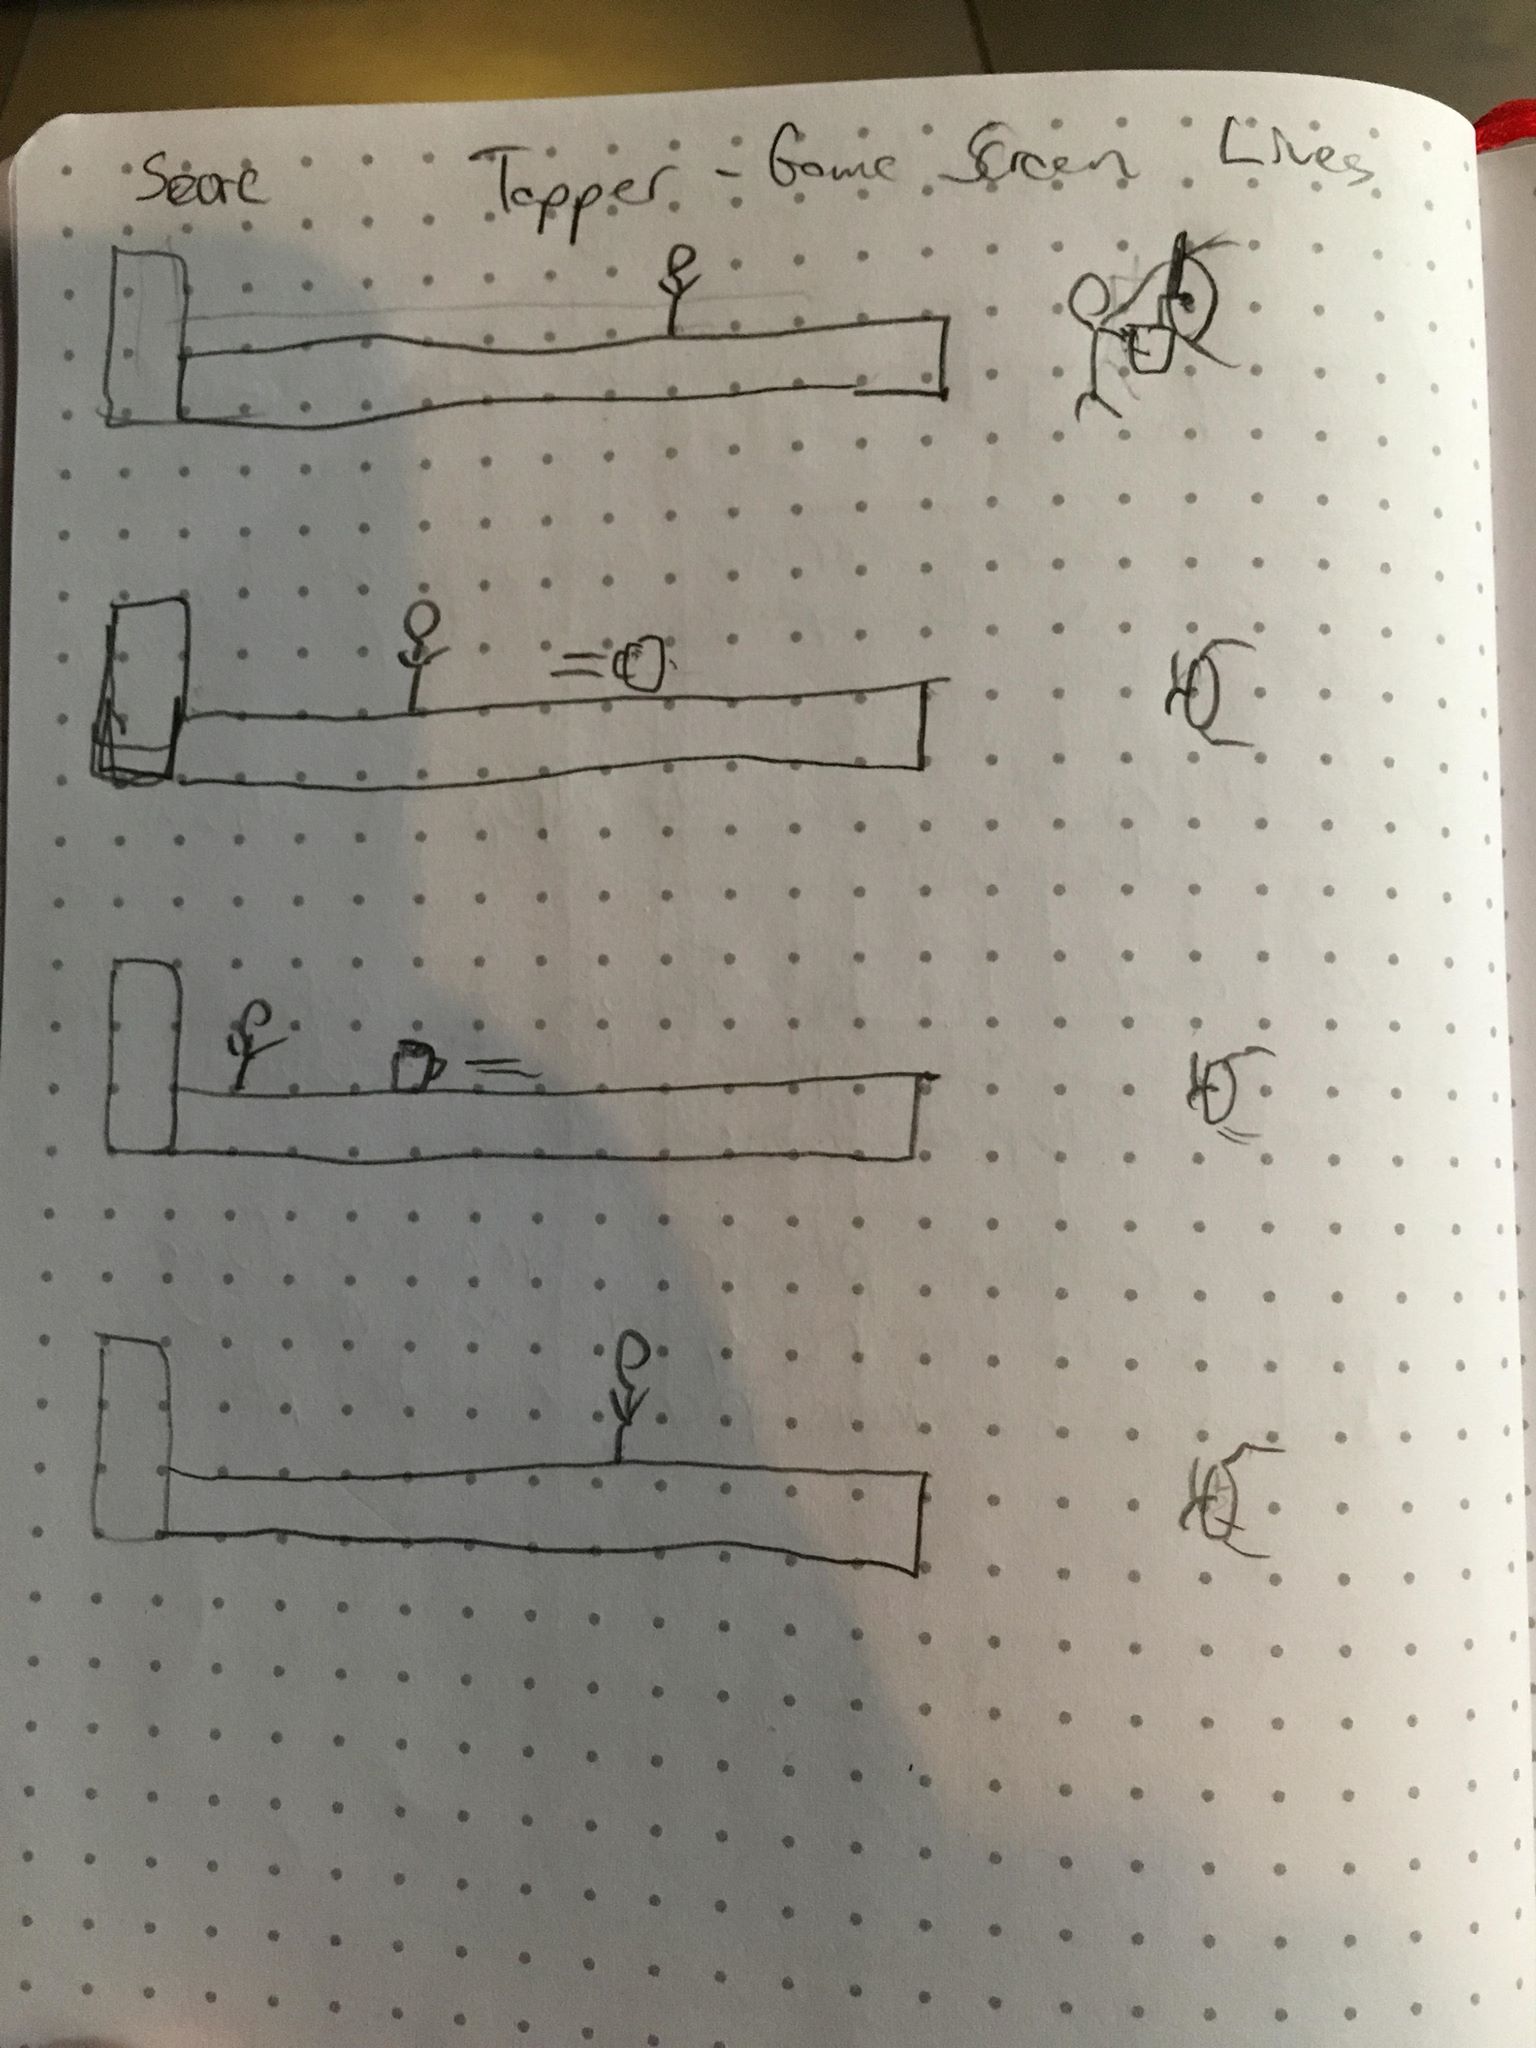 Score Tapper - Game Screen Lives